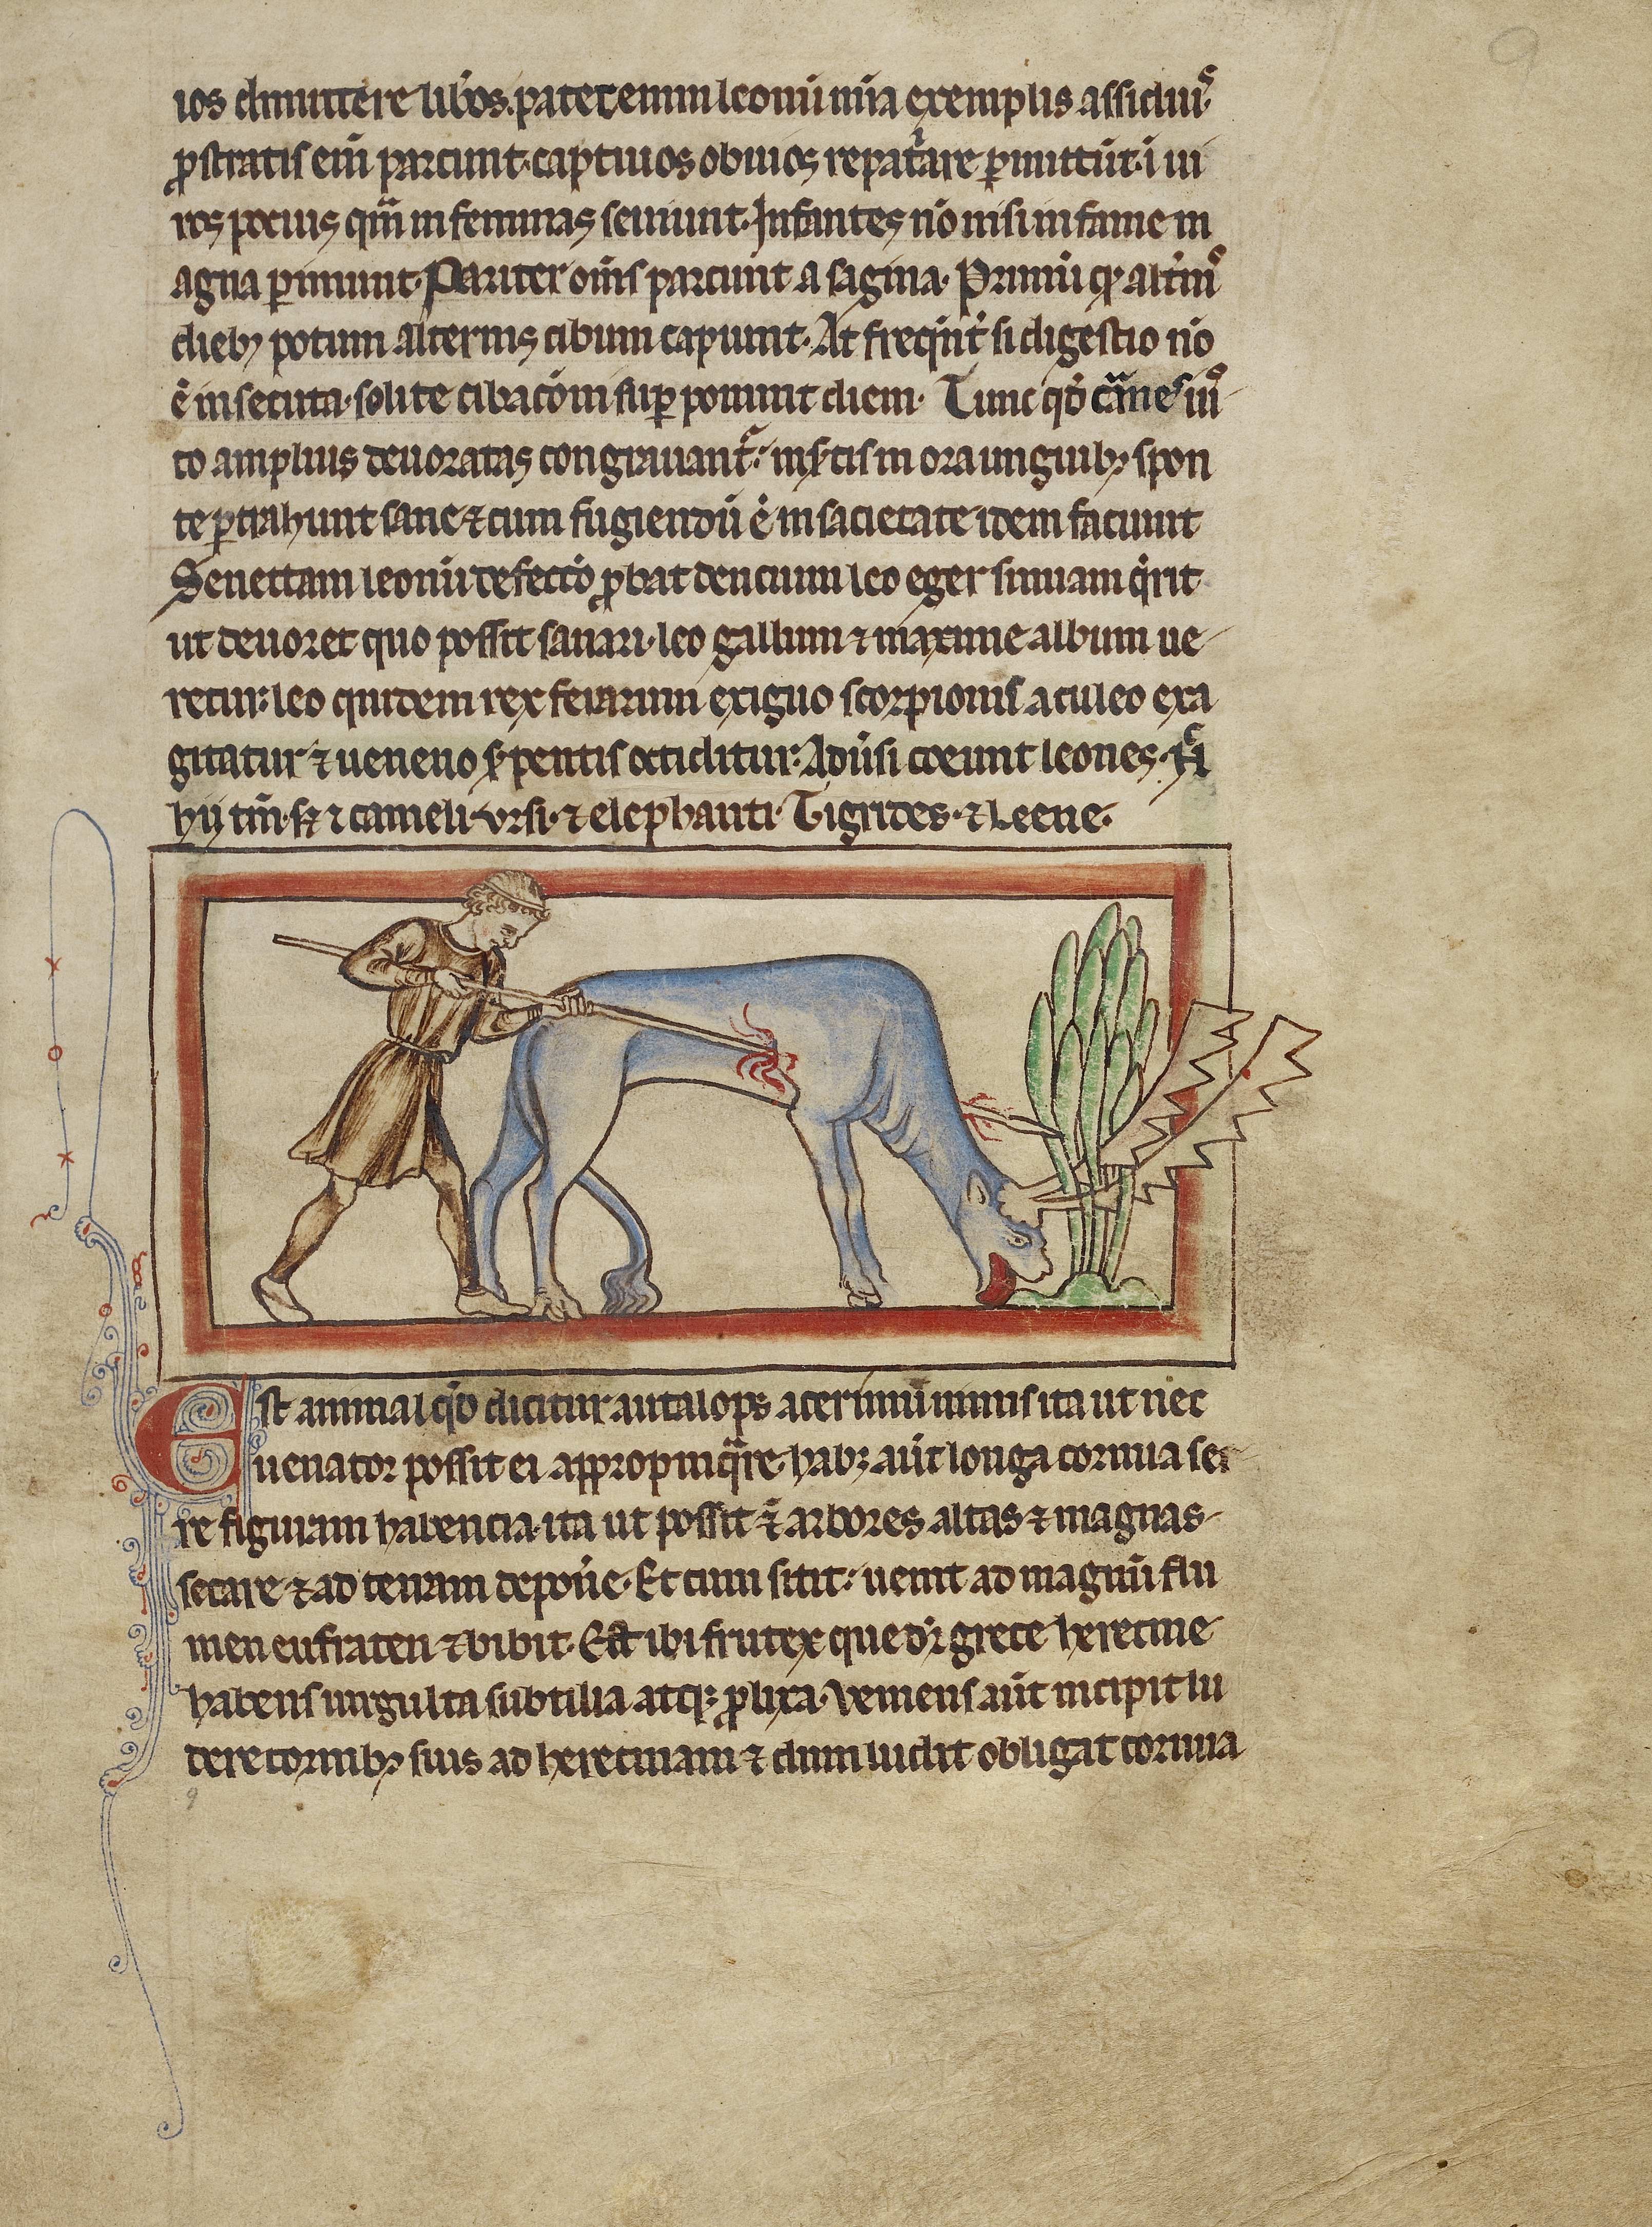 9
ios dimittere lib̾os. patet enim leonū mīa exemplis assiduis
ꝓstratis eīn parcunt. captiuos obuios repat̾are ꝑmittūt. ī ui
ros pocius qm̄ in feminas seuiunt. Infantes nō nisi in fame m
agna ꝑimunt. Pariter om̄s parcunt a sagina. Primū
dieb; potum alternis cibum capiunt. At freq̄nt̾ si digestio nō
ē insecuta. solite cibacōni suꝑ ponunt diem. Tunc qd̾ carnes iu
to amplius deuoratas congrauant̾. in ora unguib; spon
te ꝑtrahunt sane ⁊ cum fugiendū ē in sacietate idem faciunt
Senettam leonū defectō ꝓbat dencium leo eger simiam q̄rit
ut deuoret quo possit sanari. leo gallum ⁊ maxime album ue
retur. leo quidem rex ferarum exiguo scorpionis aculeo exa
gitatur ⁊ ueneno s̾pentis occiditur. Adūsi coeunt leones.
hij tm̄. sꝫ ⁊ cameli. vrsi. ⁊ elephanti. Tigrides. ⁊ Leene.
Est animal qd̾ dicitur autalops acerimū nimis ita ut nec
uenator possit ei appropinq̄re. habꝫ aūt longa cornua ser
re figuram habencia. ita ut possit arbores altas ⁊ magnas
secare ⁊ ad terram depon̄e. Et cum sitit. uenit ad magnū flu
men eufraten ⁊ bibit. Est ibi frutex que dr̄ grece herecine
habens uirgulta subtilia atqꝫ ꝓlixa. Veniens aūt incipit lu
dere cornib; suis ad herecinam ⁊ dum ludit obligat cornua
9